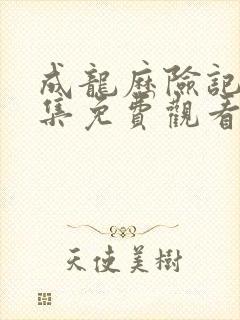 成龍歷險記
集免費觀看
天使美樹